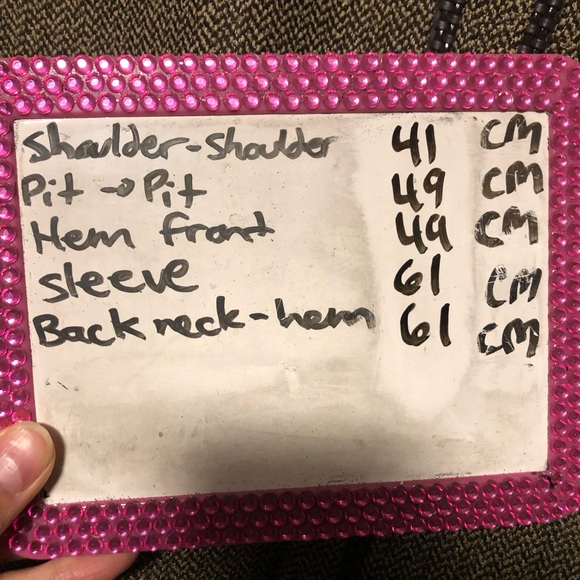 Shoulder-Shoulder 41 CM
Pit → Pit 49 CM
Hem front 49 CM
Sleeve 61 CM
Back neck-hem 61 CM